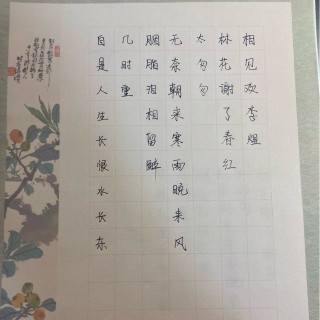 相见欢李煜
林花谢了春红
太匆匆
无奈朝来寒雨晚来风
胭脂泪相留醉
几时重
自是人生长恨水长东